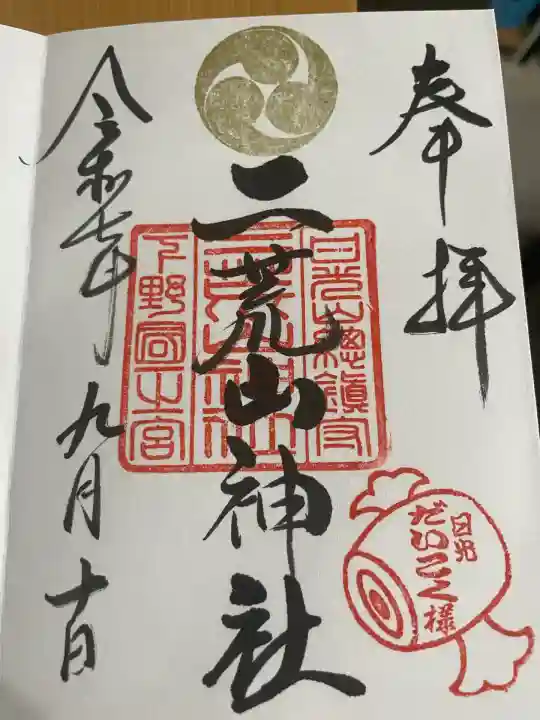 奉拝
二荒山神社
日光山總鎮守
二荒山神社
下野国一之宮
令和七年九月十日
日光
だいこく様